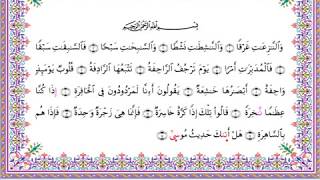 بِسْمِ اللَّهِ الرَّحْمَٰنِ الرَّحِيمِ
وَالنَّٰزِعَٰتِ غَرْقًا ۝ وَالنَّٰشِطَٰتِ نَشْطًا ۝ وَالسَّٰبِحَٰتِ سَبْحًا ۝ فَالسَّٰبِقَٰتِ سَبْقًا ۝
فَالْمُدَبِّرَٰتِ أَمْرًا ۝ يَوْمَ تَرْجُفُ الرَّاجِفَةُ ۝ تَتْبَعُهَا الرَّادِفَةُ ۝ قُلُوبٌ يَوْمَئِذٍ
وَاجِفَةٌ ۝ أَبْصَٰرُهَا خَٰشِعَةٌ ۝ يَقُولُونَ أَٰنَّا لَمَرْدُودُونَ فِي الْحَافِرَةِ ۝ إِذَا كُنَّا
عِظَٰمًا نَّخِرَةً ۝ قَالُوا تِلْكَ إِذًا كَرَّةٌ خَاسِرَةٌ ۝ فَإِنَّمَا هِيَ زَجْرَةٌ وَٰحِدَةٌ ۝ فَإِذَا هُم
بِالسَّاهِرَةِ ۝ هَلْ أَتَىٰكَ حَدِيثُ مُوسَىٰ ۝